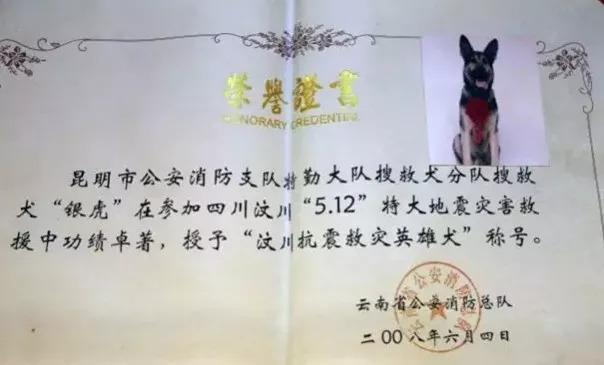 榮譽證書
HONORARY CREDENTIAL
昆明市公安消防支队特勤大队搜救犬分队搜救
犬“银虎”在参加四川汶川“5.12”特大地震灾害救
援中功绩卓著,授予“汶川抗震救灾英雄犬”称号。
云南省公安消防总队
二00八年六月四日
云南省公安消防总队